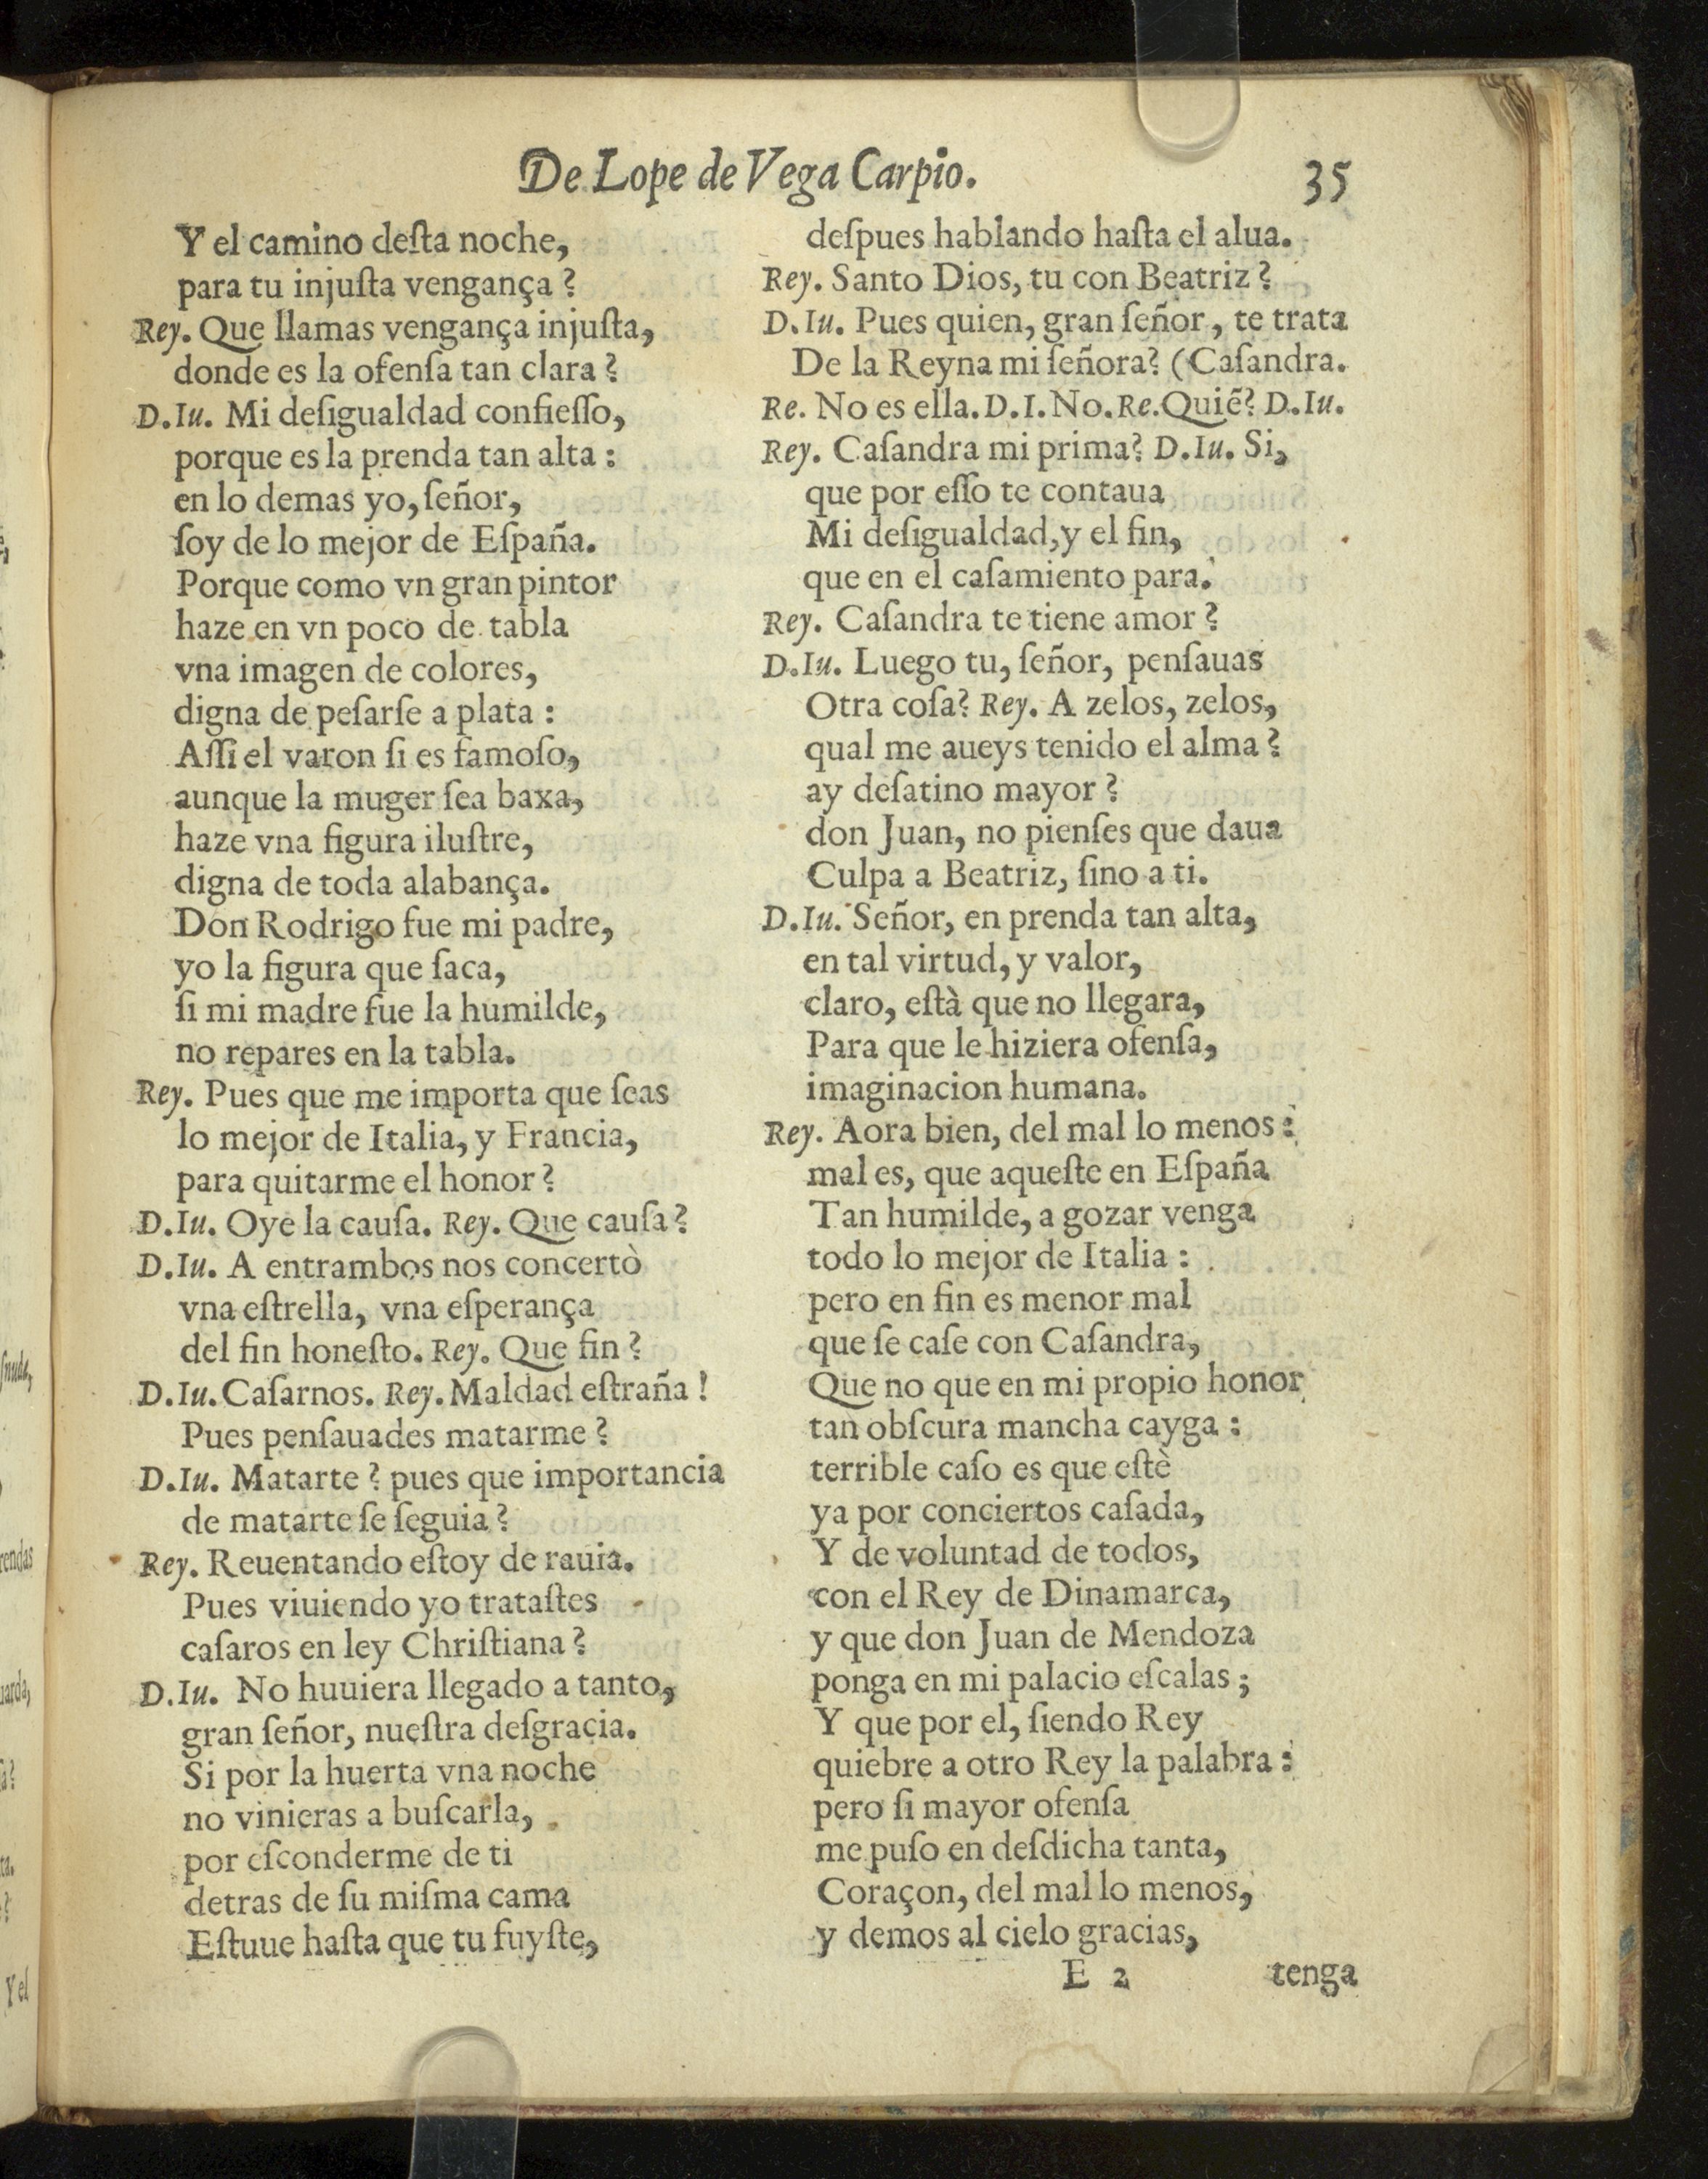 De Lope de Vega Carpio. 35
Y el camino deſta noche,
para tu injuſta vengança?
Rey. Que llamas vengança injuſta,
donde es la ofenſa tan clara?
D.Iu. Mi deſigualdad confieſſo,
porque es la prenda tan alta:
en lo demas yo, ſeñor,
ſoy de lo mejor de Eſpaña.
Porque como vn gran pintor
haze en vn poco de tabla
vna imagen de colores,
digna de peſarſe a plata:
Aſſi el varon ſi es famoſo,
aunque la muger ſea baxa,
haze vna figura iluſtre,
digna de toda alabança.
Don Rodrigo fue mi padre,
yo la figura que ſaca,
ſi mi madre fue la humilde,
no repares en la tabla.
Rey. Pues que me importa que ſeas
lo mejor de Italia, y Francia,
para quitarme el honor?
D.Iu. Oye la cauſa. Rey. Que cauſa?
D.Iu. A entrambos nos concertò
vna eſtrella, vna eſperança
del fin honeſto. Rey. Que fin?
D.Iu. Caſarnos. Rey. Maldad eſtraña!
Pues penſauades matarme?
D.Iu. Matarte? pues que importancia
de matarte ſe ſeguia?
Rey. Reuentando eſtoy de rauia.
Pues viuiendo yo trataſtes
caſaros en ley Chriſtiana?
D.Iu. No huuiera llegado a tanto,
gran ſeñor, nueſtra deſgracia.
Si por la huerta vna noche
no vinieras a buſcarla,
por eſconderme de ti
detras de ſu miſma cama
Eſtuue haſta que tu fuyſte,
deſpues hablando haſta el alua.
Rey. Santo Dios, tu con Beatriz?
D.Iu. Pues quien, gran ſeñor, te trata
De la Reyna mi ſeñora? (Caſandra.
Re. No es ella. D.I. No. Re. Quiē? D.Iu.
Rey. Caſandra mi prima? D.Iu. Si,
que por eſſo te contaua
Mi deſigualdad, y el fin,
que en el caſamiento para.
Rey. Caſandra te tiene amor?
D.Iu. Luego tu, ſeñor, penſauas
Otra coſa? Rey. A zelos, zelos,
qual me aueys tenido el alma?
ay deſatino mayor?
don Juan, no pienſes que daua
Culpa a Beatriz, ſino a ti.
D.Iu. Señor, en prenda tan alta,
en tal virtud, y valor,
claro, eſtà que no llegara,
Para que le hiziera ofenſa,
imaginacion humana.
Rey. Aora bien, del mal lo menos:
mal es, que aqueſte en Eſpaña
Tan humilde, a gozar venga
todo lo mejor de Italia:
pero en fin es menor mal
que ſe caſe con Caſandra,
Que no que en mi propio honor
tan obſcura mancha cayga:
terrible caſo es que eſtè
ya por conciertos caſada,
Y de voluntad de todos,
con el Rey de Dinamarca,
y que don Juan de Mendoza
ponga en mi palacio eſcalas;
Y que por el, ſiendo Rey
quiebre a otro Rey la palabra:
pero ſi mayor ofenſa
me puſo en deſdicha tanta,
Coraçon, del mal lo menos,
y demos al cielo gracias,
E 2 tenga